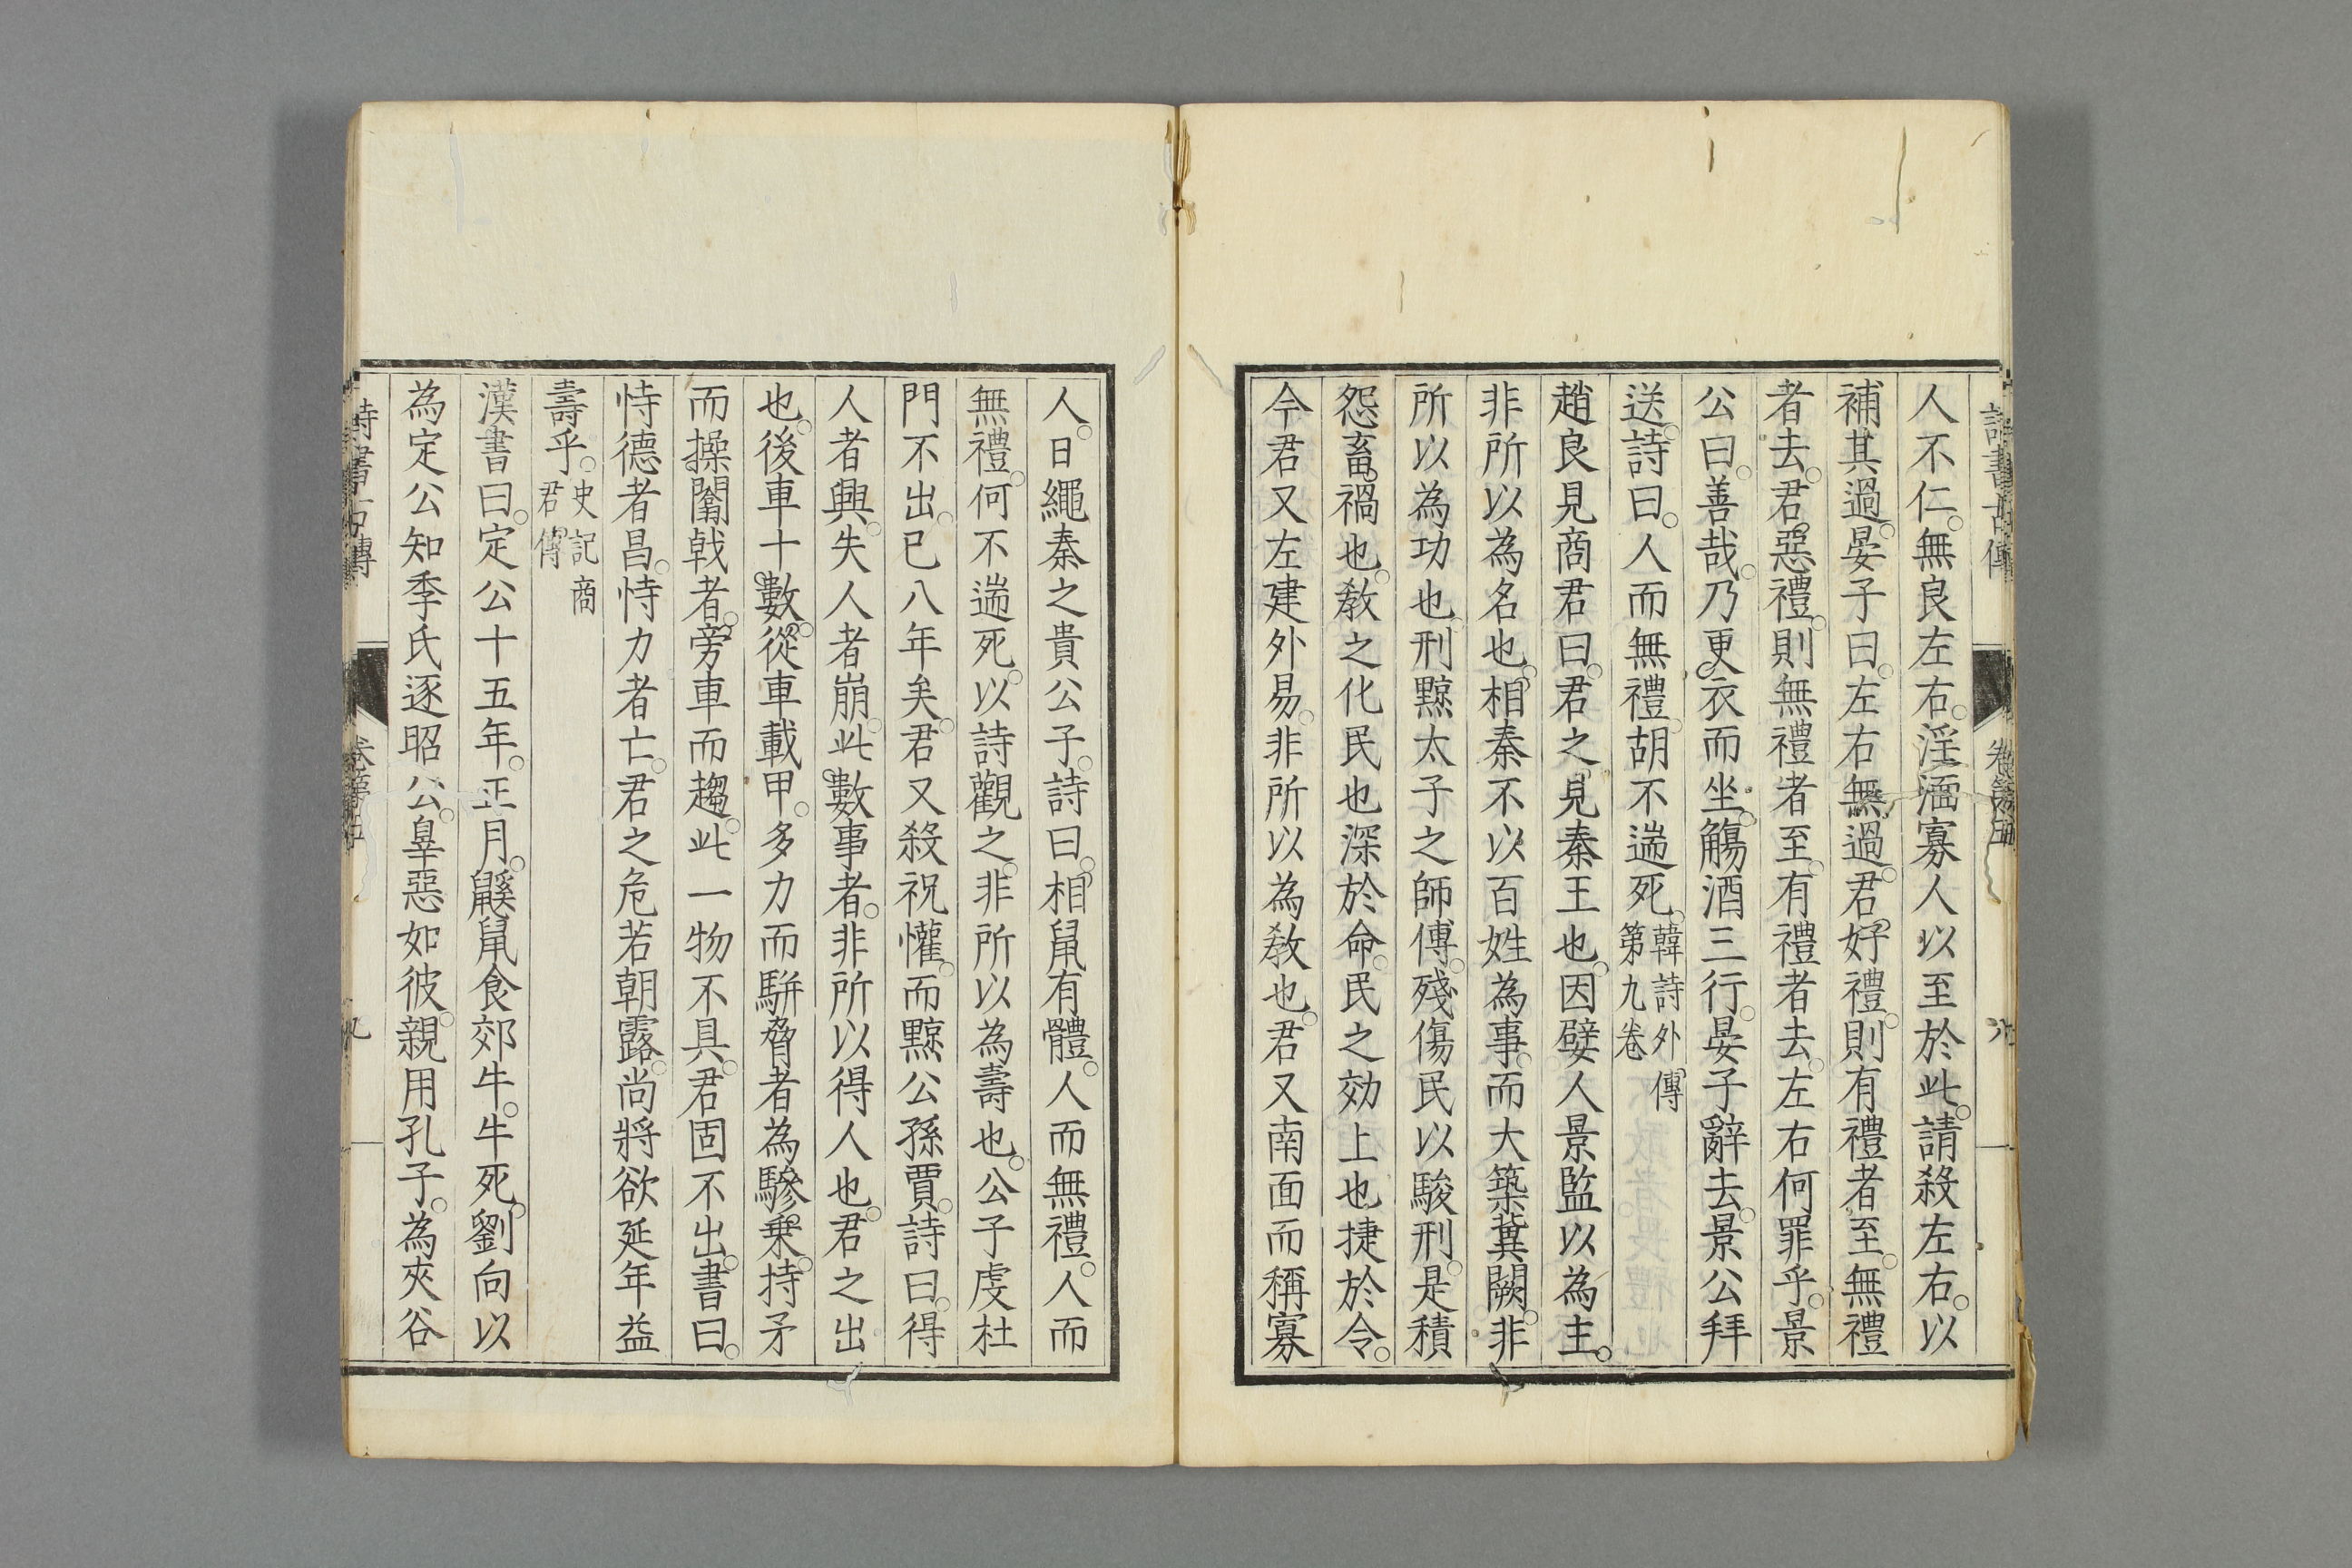 詩書古傳 卷第五
人不仁。無良左右。淫湎寡人以至於此。請殺左右。以
補其過。晏子曰。左右無過。君好禮。則有禮者至。無禮
者去。君惡禮。則無禮者至。有禮者去。左右何罪乎。景
公曰。善哉。乃更衣而坐。觴酒三行。晏子辭去。景公拜
送。詩曰。人而無禮。胡不遄死。韓詩外傳第九卷
趙良見商君曰。君之見秦王也。因嬖人景監以為主。
非所以為名也。相秦不以百姓為事。而大築冀闕。非
所以為功也。刑黥太子之師傅。殘傷民以駿刑。是積
怨畜禍也。教之化民也深於命。民之効上也捷於令。
今君又左建外易。非所以為教也。君又南面而稱寡
人。日繩秦之貴公子。詩曰。相鼠有體。人而無禮。人而
無禮。何不遄死。以詩觀之。非所以為壽也。公子虔杜
門不出。已八年矣。君又殺祝懽。而黥公孫賈。詩曰。得
人者興。失人者崩。此數事者。非所以得人也。君之出
也。後車十數。從車載甲。多力而駢脅者為驂乗。持矛
而操闟戟者。旁車而趨。此一物不具。君固不出。書曰。
恃德者昌。恃力者亡。君之危若朝露。尚將欲延年益
壽乎。史記商君傳
漢書曰。定公十五年。正月。鼷鼠食郊牛。牛死。劉向以
為定公知季氏逐昭公。辠惡如彼。親用孔子。為夾谷
詩書古傳 卷第五 九